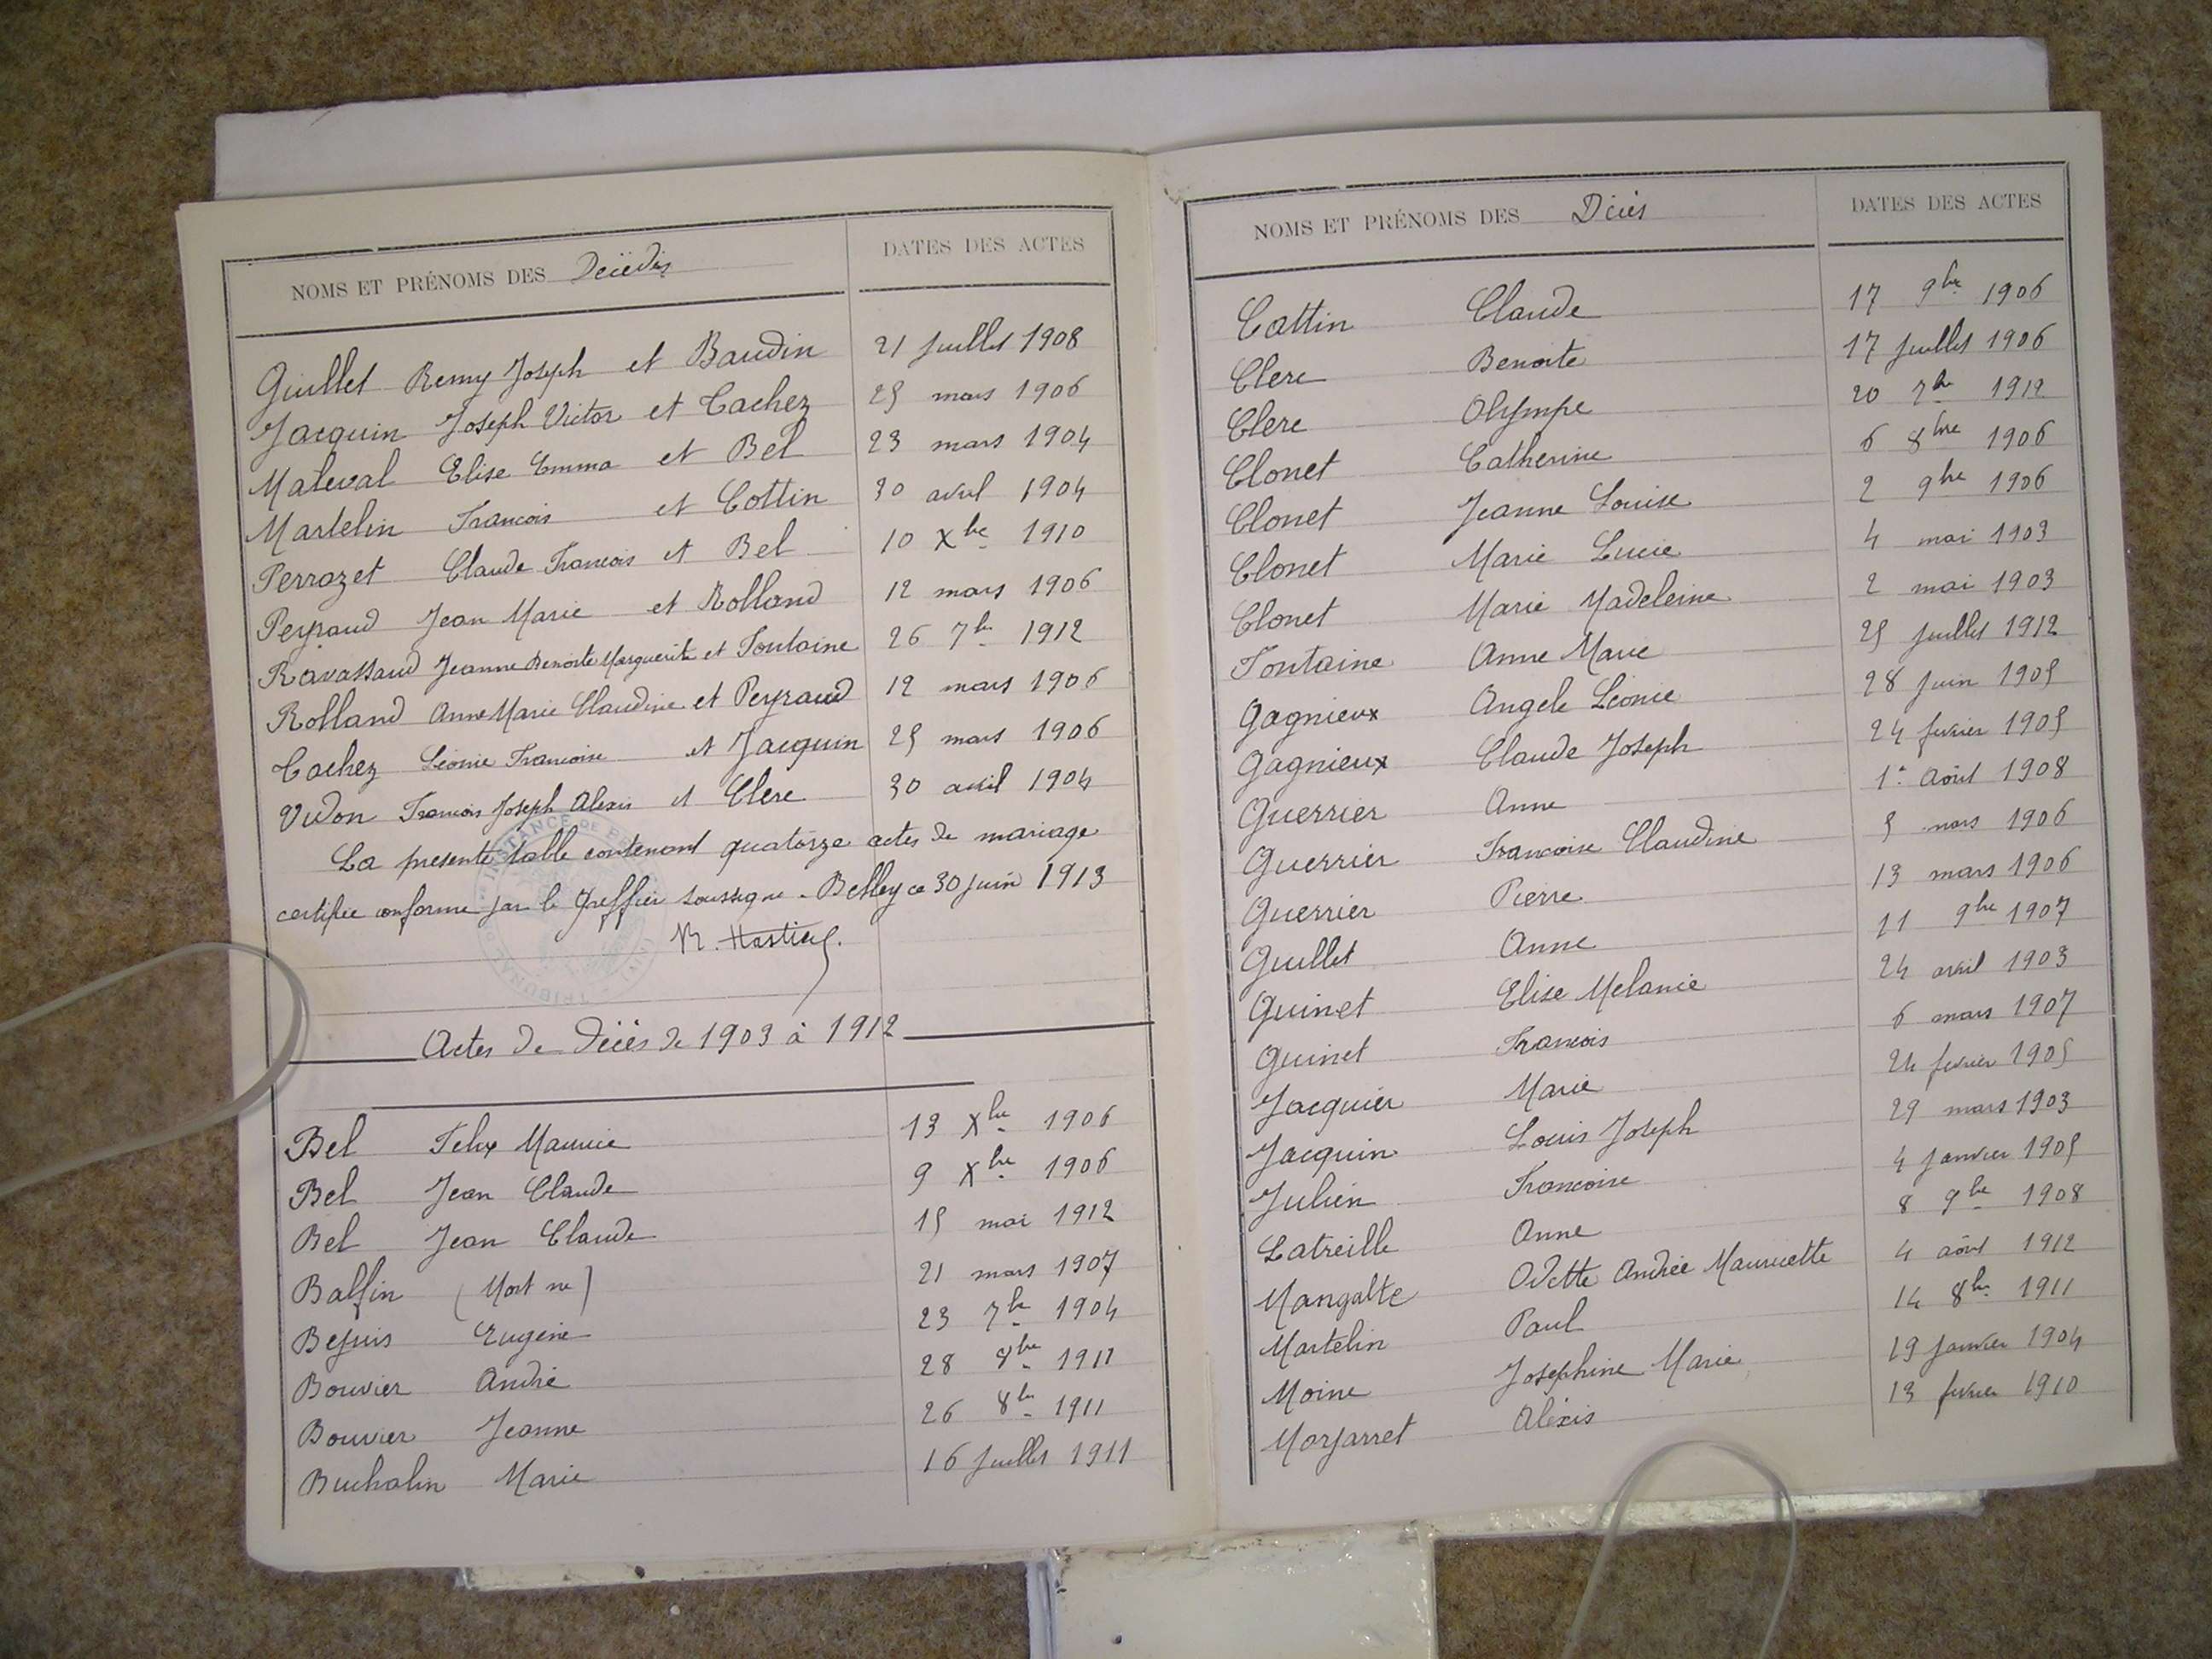 NOMS ET PRÉNOMS DES Décédés
DATES DES ACTES
Guillet Remy Joseph et Baudin 21 Juillet 1908
Jacquin Joseph Victor et Cachez 25 mars 1906
Maleval Elise Emma et Bel 23 mars 1904
Martelin Francois et Cottin 30 avril 1904
Perrozet Claude Francois et Bel 10 Xbre 1910
Peyraud Jean Marie et Rolland 12 mars 1906
Ravassaud Jeanne Benoite Marguerite et Fontaine 26 7bre 1912
Rolland Anne Marie Claudine et Peyraud 12 mars 1906
Cachez Léonie Francoise et Jacquin 25 mars 1906
Vudon Francois Joseph Alexis et Clerc 30 avril 1904
La presente table contenant quatorze actes de mariage
certifiée conforme par le Greffier soussigné - Belley ce 30 juin 1913
Actes de Décès de 1903 à 1912
Bel Felix Maurice 13 Xbre 1906
Bel Jean Claude 9 Xbre 1906
Bel Jean Claude 15 mai 1912
Balfin (Mort né) 21 mars 1907
Bejuis Eugène 23 7bre 1904
Bouvier André 28 8bre 1911
Bouvier Jeanne 26 8bre 1911
Buchalin Marie 16 Juillet 1911
NOMS ET PRÉNOMS DES Décès
DATES DES ACTES
Cattin Claude 17 9bre 1906
Clerc Benoite 17 Juillet 1906
Clerc Olympe 20 7bre 1912
Clonet Catherine 6 8bre 1906
Clonet Jeanne Louise 2 9bre 1906
Clonet Marie Lucie 4 mai 1903
Clonet Marie Madeleine 2 mai 1903
Fontaine Anne Marie 25 Juillet 1912
Gagnieux Angele Léonie 28 Juin 1905
Gagnieux Claude Joseph 24 fevrier 1905
Guerrier Anne 1er Août 1908
Guerrier Francoise Claudine 5 mars 1906
Guerrier Pierre 13 mars 1906
Guillet Anne 11 9bre 1907
Guinet Elise Melanie 24 avril 1903
Guinet Francois 6 mars 1907
Jacquier Marie 24 fevrier 1905
Jacquin Louis Joseph 29 mars 1903
Julien Francoise 4 Janvier 1905
Latreille Anne 8 9bre 1908
Mangalte Odette Andrée Mauricette 4 août 1912
Martelin Paul 14 8bre 1911
Moine Josephine Marie 19 Janvier 1904
Morjarret Alexis 13 fevrier 1910